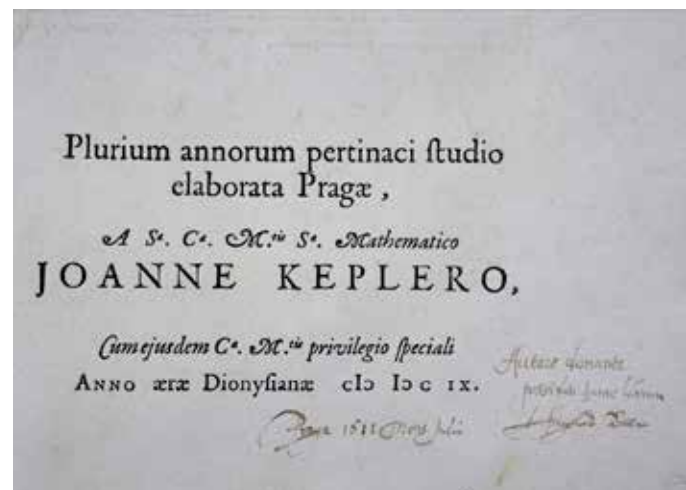 Plurium annorum pertinaci ſtudio
elaborata Pragæ ,
A Sᵃ. Cᵃ. M.ᵗⁱˢ Sᵒ. Mathematico
JOANNE KEPLERO,
Cum ejusdem Cᵃ. M.ᵗⁱˢ privilegio ſpeciali
ANNO æræ Dionyſianæ cIↄ Iↄ c IX.
Autore donante
hunc librum
1611 Julii